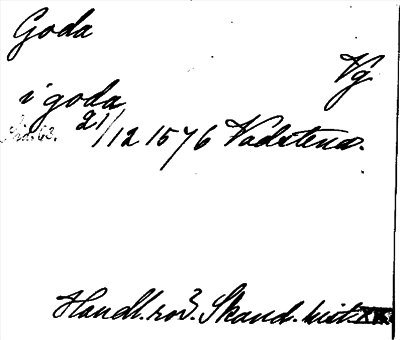 Goda
Vg
i goda
Sid. 63. 21/12 1576 Vadstena.
Handl. rör. Skand. hist. XII.